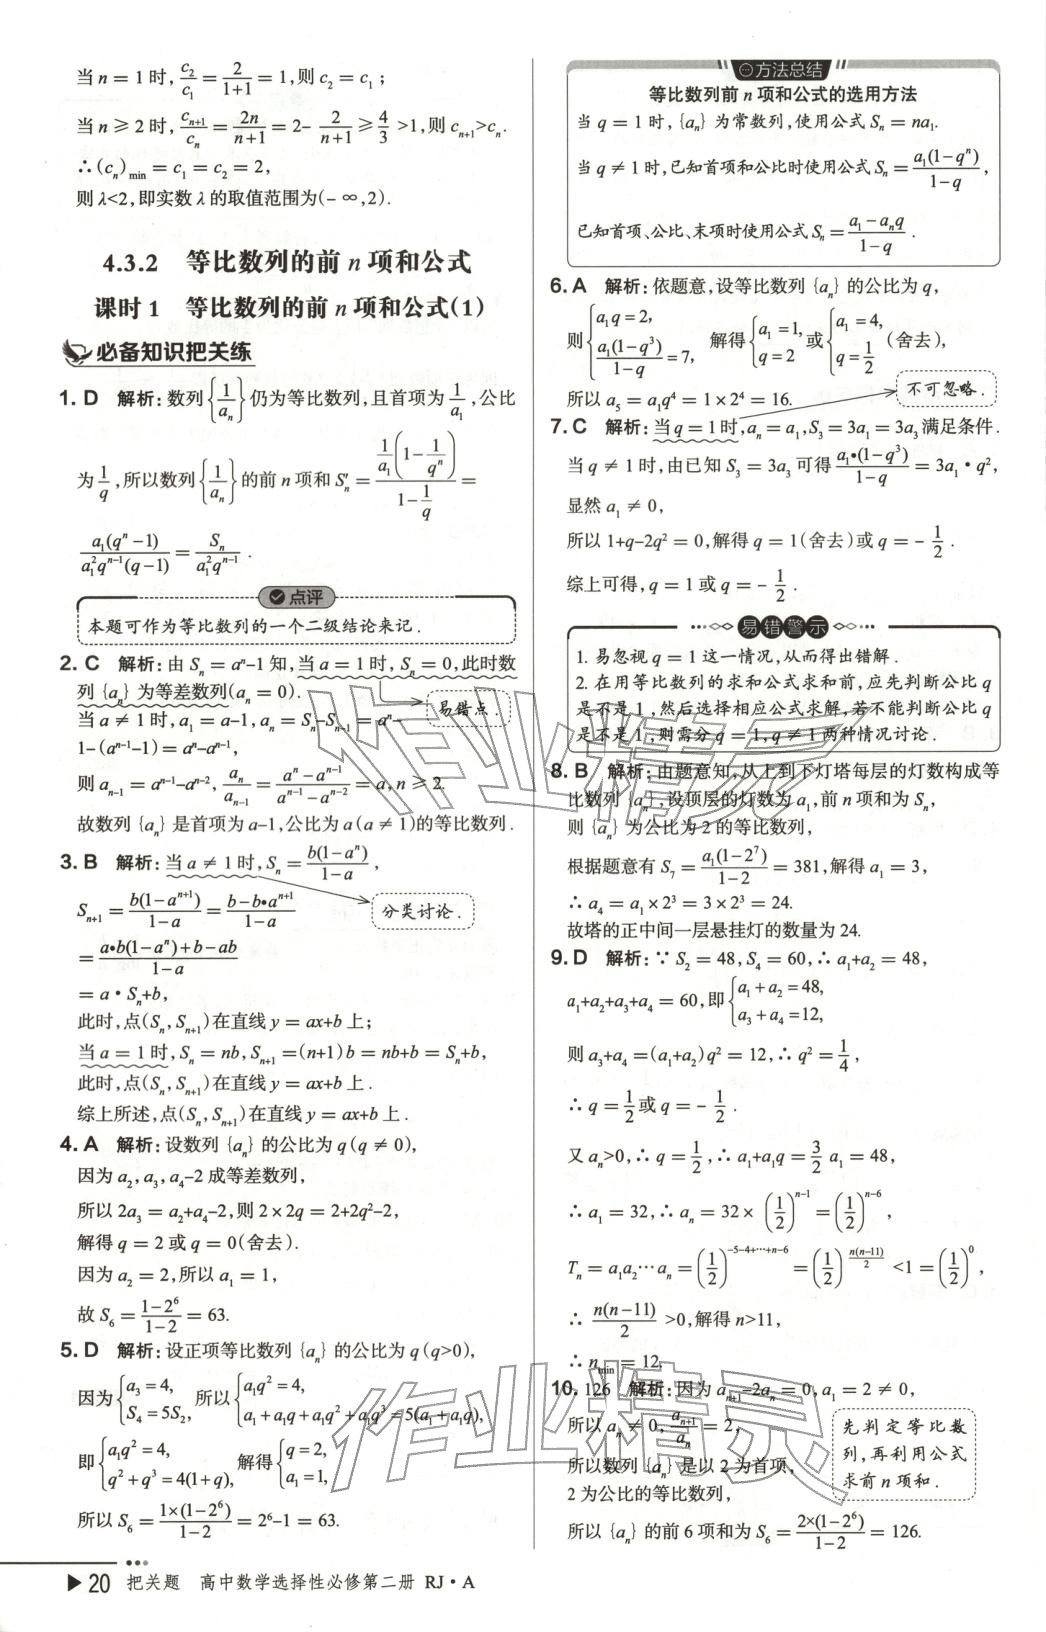 当 n = 1 时, c₂/c₁ = 2/(1+1) = 1,则 c₂ = c₁;
当 n ≥ 2 时, cₙ₊₁/cₙ = 2n/(n+1) = 2- 2/(n+1) ≥ 4/3 >1,则 cₙ₊₁>cₙ.
∴(cₙ)min = c₁ = c₂ = 2,
则 λ<2,即实数 λ 的取值范围为(- ∞,2).
4.3.2 等比数列的前 n 项和公式
课时 1 等比数列的前 n 项和公式(1)
必备知识把关练
1. D 解析:数列{1/aₙ}仍为等比数列,且首项为 1/a₁,公比
为 1/q,所以数列{1/aₙ}的前 n 项和 S′ₙ = (1/a₁)(1-1/qⁿ)/(1-1/q) =
a₁(qⁿ-1)/(a₁²qⁿ⁻¹(q-1)) = Sₙ/(a₁²qⁿ⁻¹).
点评
本题可作为等比数列的一个二级结论来记.
2. C 解析:由 Sₙ = aⁿ-1 知,当 a = 1 时,Sₙ = 0,此时数
列{aₙ}为等差数列(aₙ = 0).
易错点.
当 a ≠ 1 时,a₁ = a-1,aₙ = Sₙ-Sₙ₋₁ = aⁿ-
1-(aⁿ⁻¹-1) = aⁿ-aⁿ⁻¹,
则 aₙ₋₁ = aⁿ⁻¹-aⁿ⁻², aₙ/aₙ₋₁ = (aⁿ-aⁿ⁻¹)/(aⁿ⁻¹-aⁿ⁻²) = a,n ≥ 2.
故数列{aₙ}是首项为 a-1,公比为 a(a ≠ 1)的等比数列.
3. B 解析:当 a ≠ 1 时,Sₙ = b(1-aⁿ)/(1-a),
Sₙ₊₁ = b(1-aⁿ⁺¹)/(1-a) = (b-b•aⁿ⁺¹)/(1-a)
分类讨论.
= (a•b(1-aⁿ)+b-ab)/(1-a)
= a•Sₙ+b,
此时,点(Sₙ,Sₙ₊₁)在直线 y = ax+b 上;
当 a = 1 时,Sₙ = nb,Sₙ₊₁ =(n+1)b = nb+b = Sₙ+b,
此时,点(Sₙ,Sₙ₊₁)在直线 y = ax+b 上.
综上所述,点(Sₙ,Sₙ₊₁)在直线 y = ax+b 上.
4. A 解析:设数列{aₙ}的公比为 q(q ≠ 0),
因为 a₂,a₃,a₄-2 成等差数列,
所以 2a₃ = a₂+a₄-2,则 2×2q = 2+2q²-2,
解得 q = 2 或 q = 0(舍去).
因为 a₂ = 2,所以 a₁ = 1,
故 S₆ = (1-2⁶)/(1-2) = 63.
5. D 解析:设正项等比数列{aₙ}的公比为 q(q>0),
因为{a₃ = 4, S₄ = 5S₂, 所以{a₁q² = 4, a₁+a₁q+a₁q²+a₁q³ =5(a₁+a₁q),
即{a₁q² = 4, q²+q³ =4(1+q), 解得{q = 2, a₁ = 1,
所以 S₆ = 1×(1-2⁶)/(1-2) = 2⁶-1 = 63.
20 把关题 高中数学选择性必修第二册 RJ·A
方法总结
等比数列前 n 项和公式的选用方法
当 q = 1 时,{aₙ}为常数列,使用公式 Sₙ = na₁.
当 q ≠ 1 时,已知首项和公比时使用公式 Sₙ = a₁(1-qⁿ)/(1-q),
已知首项、公比、末项时使用公式 Sₙ = (a₁-aₙq)/(1-q).
6. A 解析:依题意,设等比数列{aₙ}的公比为 q,
则{a₁q = 2, a₁(1-q³)/(1-q) = 7, 解得{a₁ = 1, q = 2 或{a₁ = 4, q = 1/2 (舍去),
所以 a₅ = a₁q⁴ = 1×2⁴ = 16.
不可忽略.
7. C 解析:当 q = 1 时,aₙ = a₁,S₃ = 3a₁ = 3a₃ 满足条件.
当 q ≠ 1 时,由已知 S₃ = 3a₃ 可得 a₁•(1-q³)/(1-q) = 3a₁•q²,
显然 a₁ ≠ 0,
所以 1+q-2q² = 0,解得 q = 1(舍去)或 q = - 1/2.
综上可得,q = 1 或 q = - 1/2.
易错警示
1. 易忽视 q = 1 这一情况,从而得出错解.
2. 在用等比数列的求和公式求和前,应先判断公比 q
是不是 1,然后选择相应公式求解,若不能判断公比 q
是不是 1,则需分 q = 1,q ≠ 1 两种情况讨论.
8. B 解析:由题意知,从上到下灯塔每层的灯数构成等
比数列{aₙ},设顶层的灯数为 a₁,前 n 项和为 Sₙ,
则{aₙ}为公比为 2 的等比数列,
根据题意有 S₇ = a₁(1-2⁷)/(1-2) = 381,解得 a₁ = 3,
∴ a₄ = a₁×2³ = 3×2³ = 24.
故塔的正中间一层悬挂灯的数量为 24.
9. D 解析:∵ S₂ = 48,S₄ = 60,∴ a₁+a₂ = 48,
a₁+a₂+a₃+a₄ = 60,即{a₁+a₂ = 48, a₃+a₄ =12,
则 a₃+a₄ =(a₁+a₂)q² = 12,∴ q² = 1/4,
∴ q = 1/2 或 q = - 1/2.
又 aₙ>0,∴ q = 1/2,∴ a₁+a₁q = 3/2 a₁ = 48,
∴ a₁ = 32,∴ aₙ = 32×(1/2)ⁿ⁻¹ = (1/2)ⁿ⁻⁶,
Tₙ = a₁a₂…aₙ = (1/2)^(-5-4+…+n-6) = (1/2)^(n(n-11)/2) <1 = (1/2)⁰,
∴ n(n-11)/2 >0,解得 n>11,
∴ nmin = 12.
10. 126 解析:因为 aₙ₊₁-2aₙ = 0,a₁ = 2 ≠ 0,
所以 aₙ ≠ 0, aₙ₊₁/aₙ = 2,
所以数列{aₙ}是以 2 为首项,
2 为公比的等比数列,
先判定等比数
列,再利用公式
求前 n 项和.
所以{aₙ}的前 6 项和为 S₆ = 2×(1-2⁶)/(1-2) = 126.
作业精灵
作业精灵